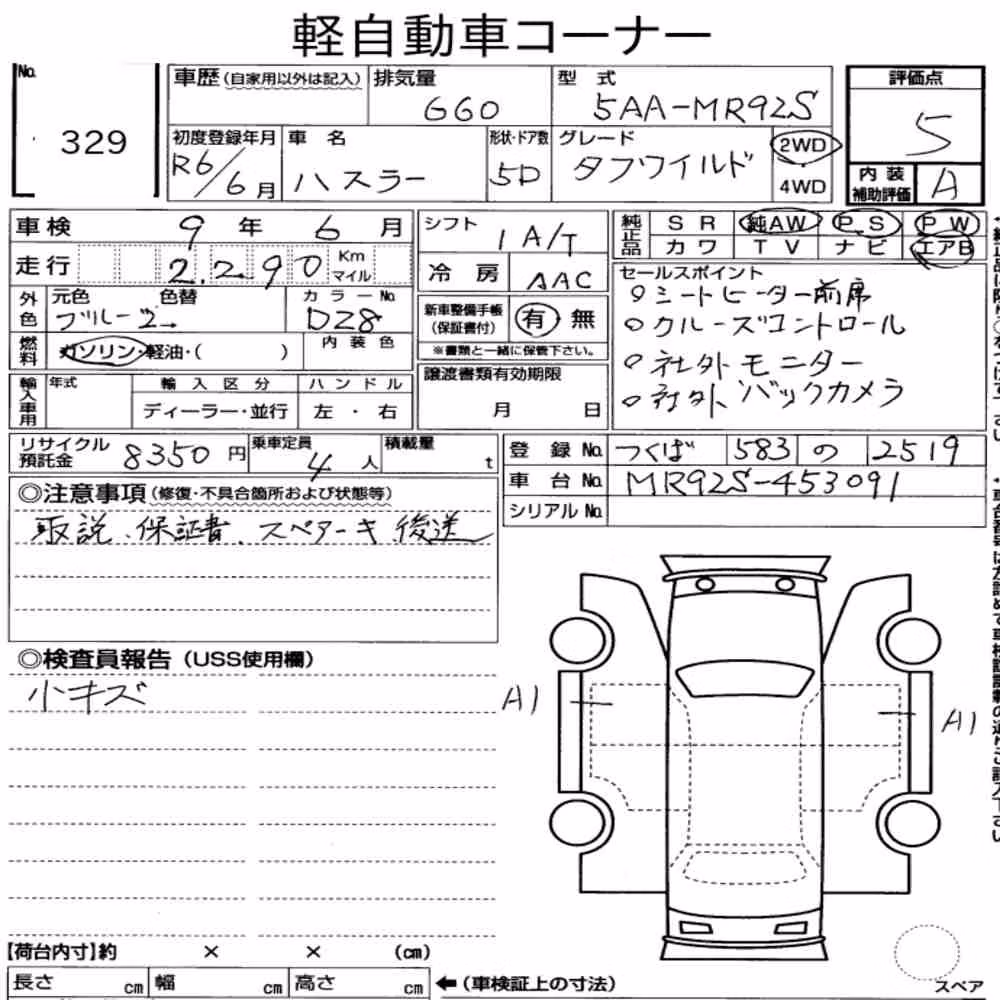 軽自動車コーナー
No. 329
車歴 (自家用以外は記入)
排気量 660
型式 5AA-MR92S
評価点 5
初度登録年月 R6/6月
車名 ハスラー
形状・ドア数 5D
グレード タフワイルド
2WD
4WD
内装補助評価 A
車検 9年 6月
走行 2,290 Km マイル
シフト 1A/T
冷房 AAC
純正品 SR 純AW PS PW
カワ TV ナビ エアB
外色 元色 ブルー2 色替 カラーNo. DZ8
燃料 ガソリン・軽油・( ) 内装色
新車整備手帳(保証書付) 有 無
※書類と一緒に保管下さい。
セールスポイント
○シートヒーター前席
○クルーズコントロール
○社外モニター
○社外バックカメラ
輸入車用 年式 輸入区分 ハンドル
ディーラー・並行 左・右
譲渡書類有効期限
月 日
リサイクル預託金 8350円
乗車定員 4人
積載量 t
登録No. つくば 583 の 2519
車台No. MR92S-453091
シリアルNo.
◎注意事項(修復・不具合箇所および状態等)
取説、保証書、スペアーキ後送
◎検査員報告(USS使用欄)
小キズ
A1
A1
【荷台内寸】約 × × (cm)
長さ cm 幅 cm 高さ cm ←(車検証上の寸法)
スペア